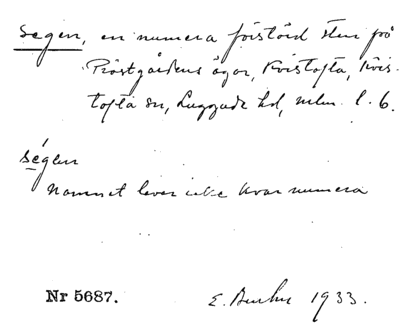 Segen, en numera förstörd sten på
Prästgårdens ägor, Kvistofta, Kvis-
tofta sn, Luggude hd, mlm. l. 6.
ségen
Namnet lever icke kvar numera
Nr 5687.
E. 1933.